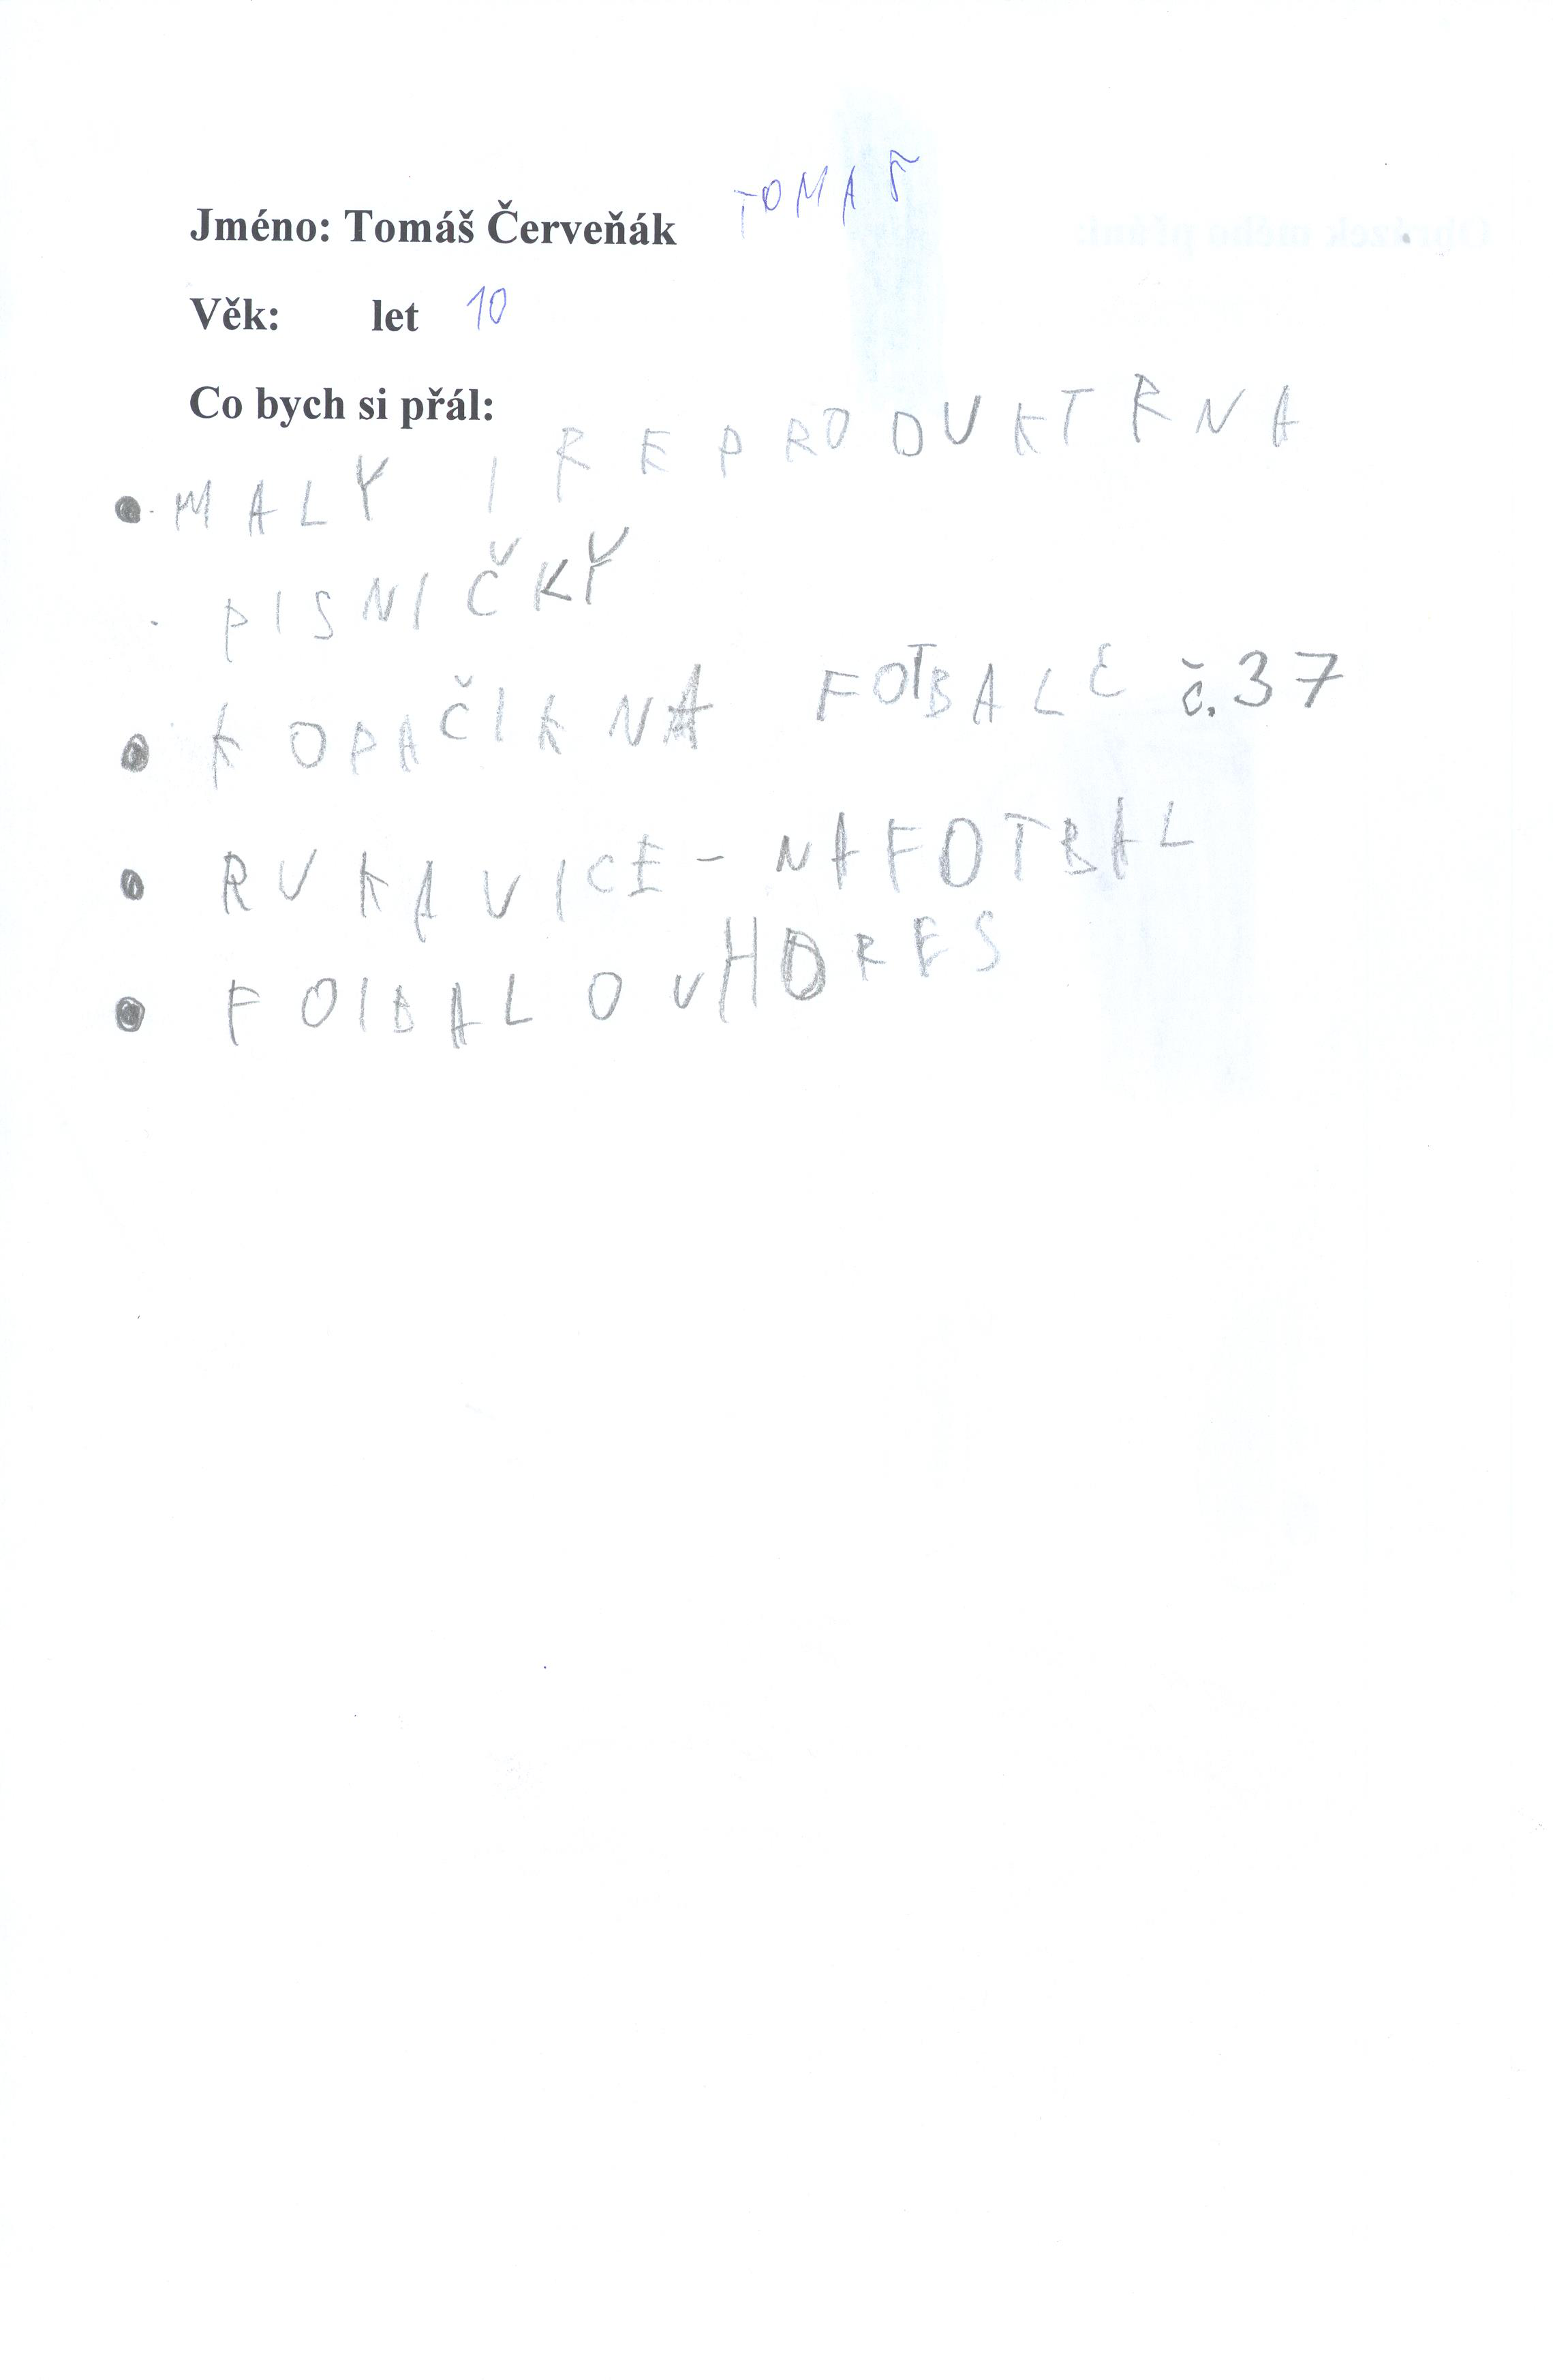 Jméno: Tomáš Červeňák TOMAŠ
Věk: let 10
Co bych si přál:
• MALY I REPRODUKTRNA
PISNIČKY
• KOPAČIK NA FOTBALE č. 37
• RUKAVICE - NAFOTBAL
• FOIBAL O VHORES